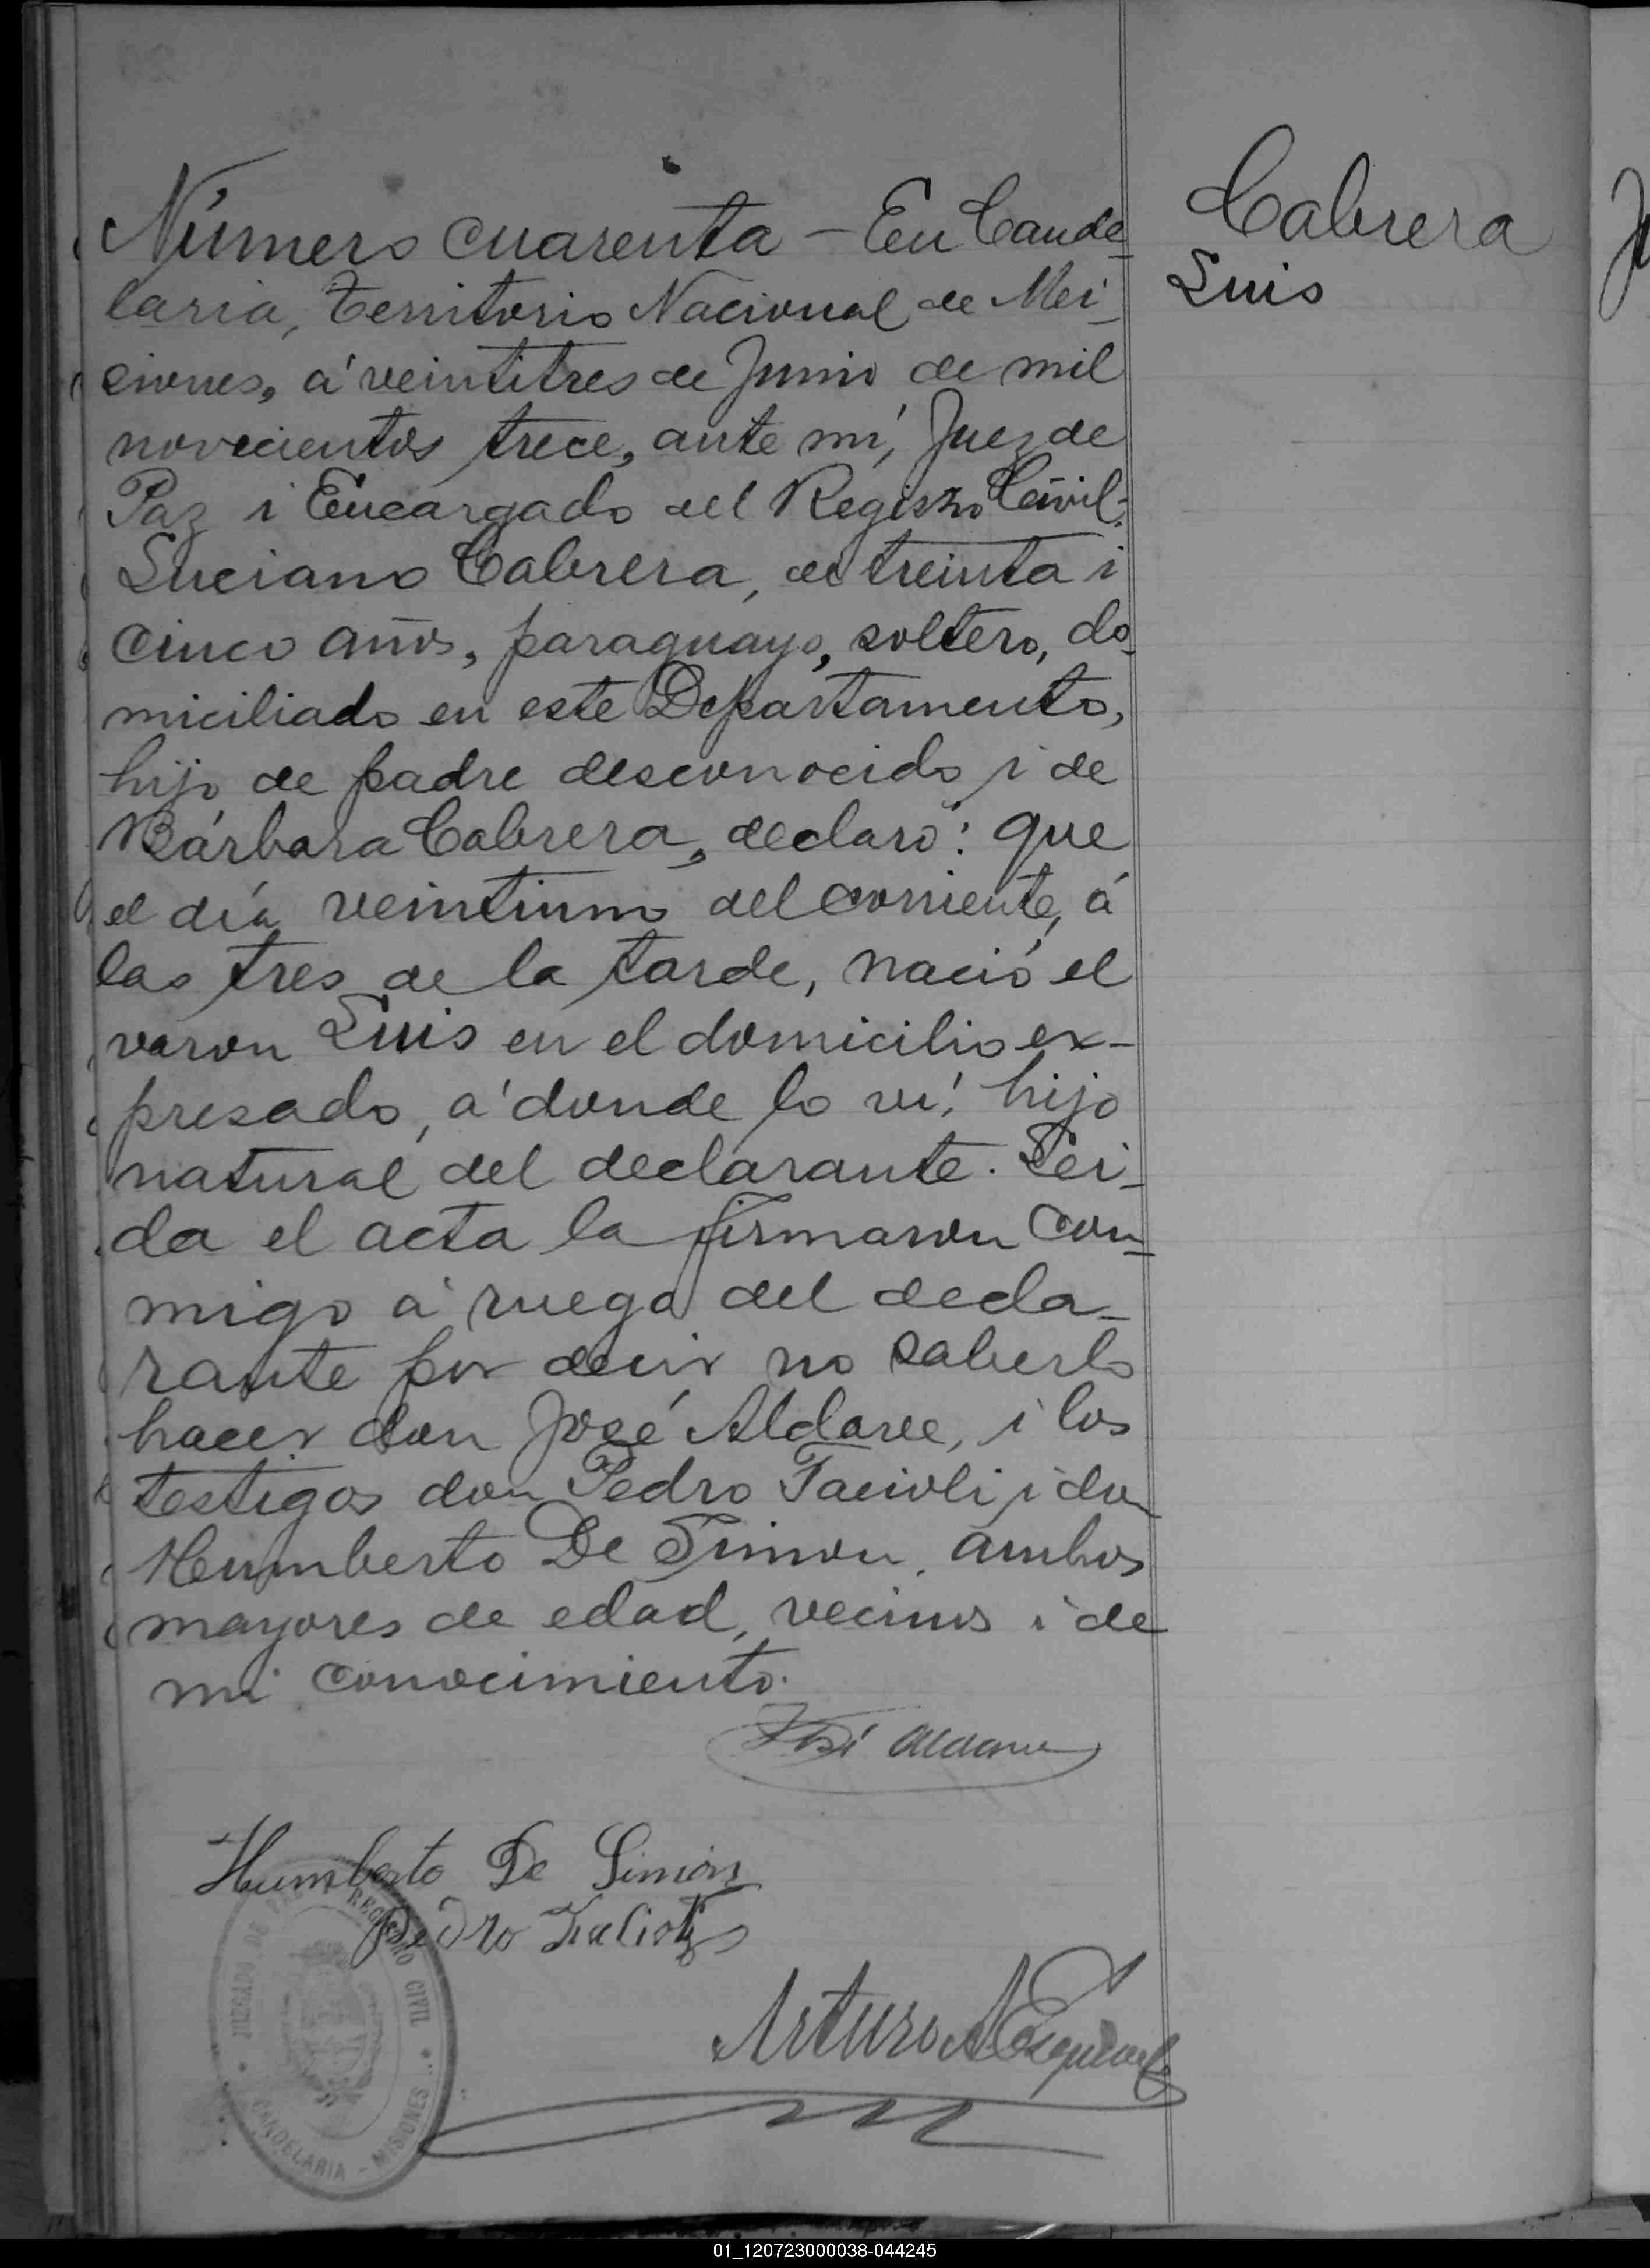 Número cuarenta – En Cande-
laria, Territorio Nacional de Mi-
siones, á veintitres de Junio de mil
novecientos trece, ante mí, Juez de
Paz i Encargado del Registro Civil:
Luciano Cabrera, de treinta i
cinco años, paraguayo, soltero, do-
miciliado en este Departamento,
hijo de padre desconocido i de
Bárbara Cabrera, declaró: que
el día veintiuno del corriente, á
las tres de la tarde, nació el
varon Luis en el domicilio ex-
presado, á donde lo ví, hijo
natural del declarante. Lei-
da el acta la firmaron con-
migo á ruego del decla-
rante por decir no saberlo
hacer don José Aldave, i los
testigos don Pedro Facioli i don
Humberto De Simon, ambos
mayores de edad, vecinos i de
mi conocimiento.
José Aldave
Humberto De Simon
Pedro
Arturo A
JUZGADO DE PAZ Y REGISTRO CIVIL
CANDELARIA - MISIONES
Cabrera
Luis
01_120723000038-044245